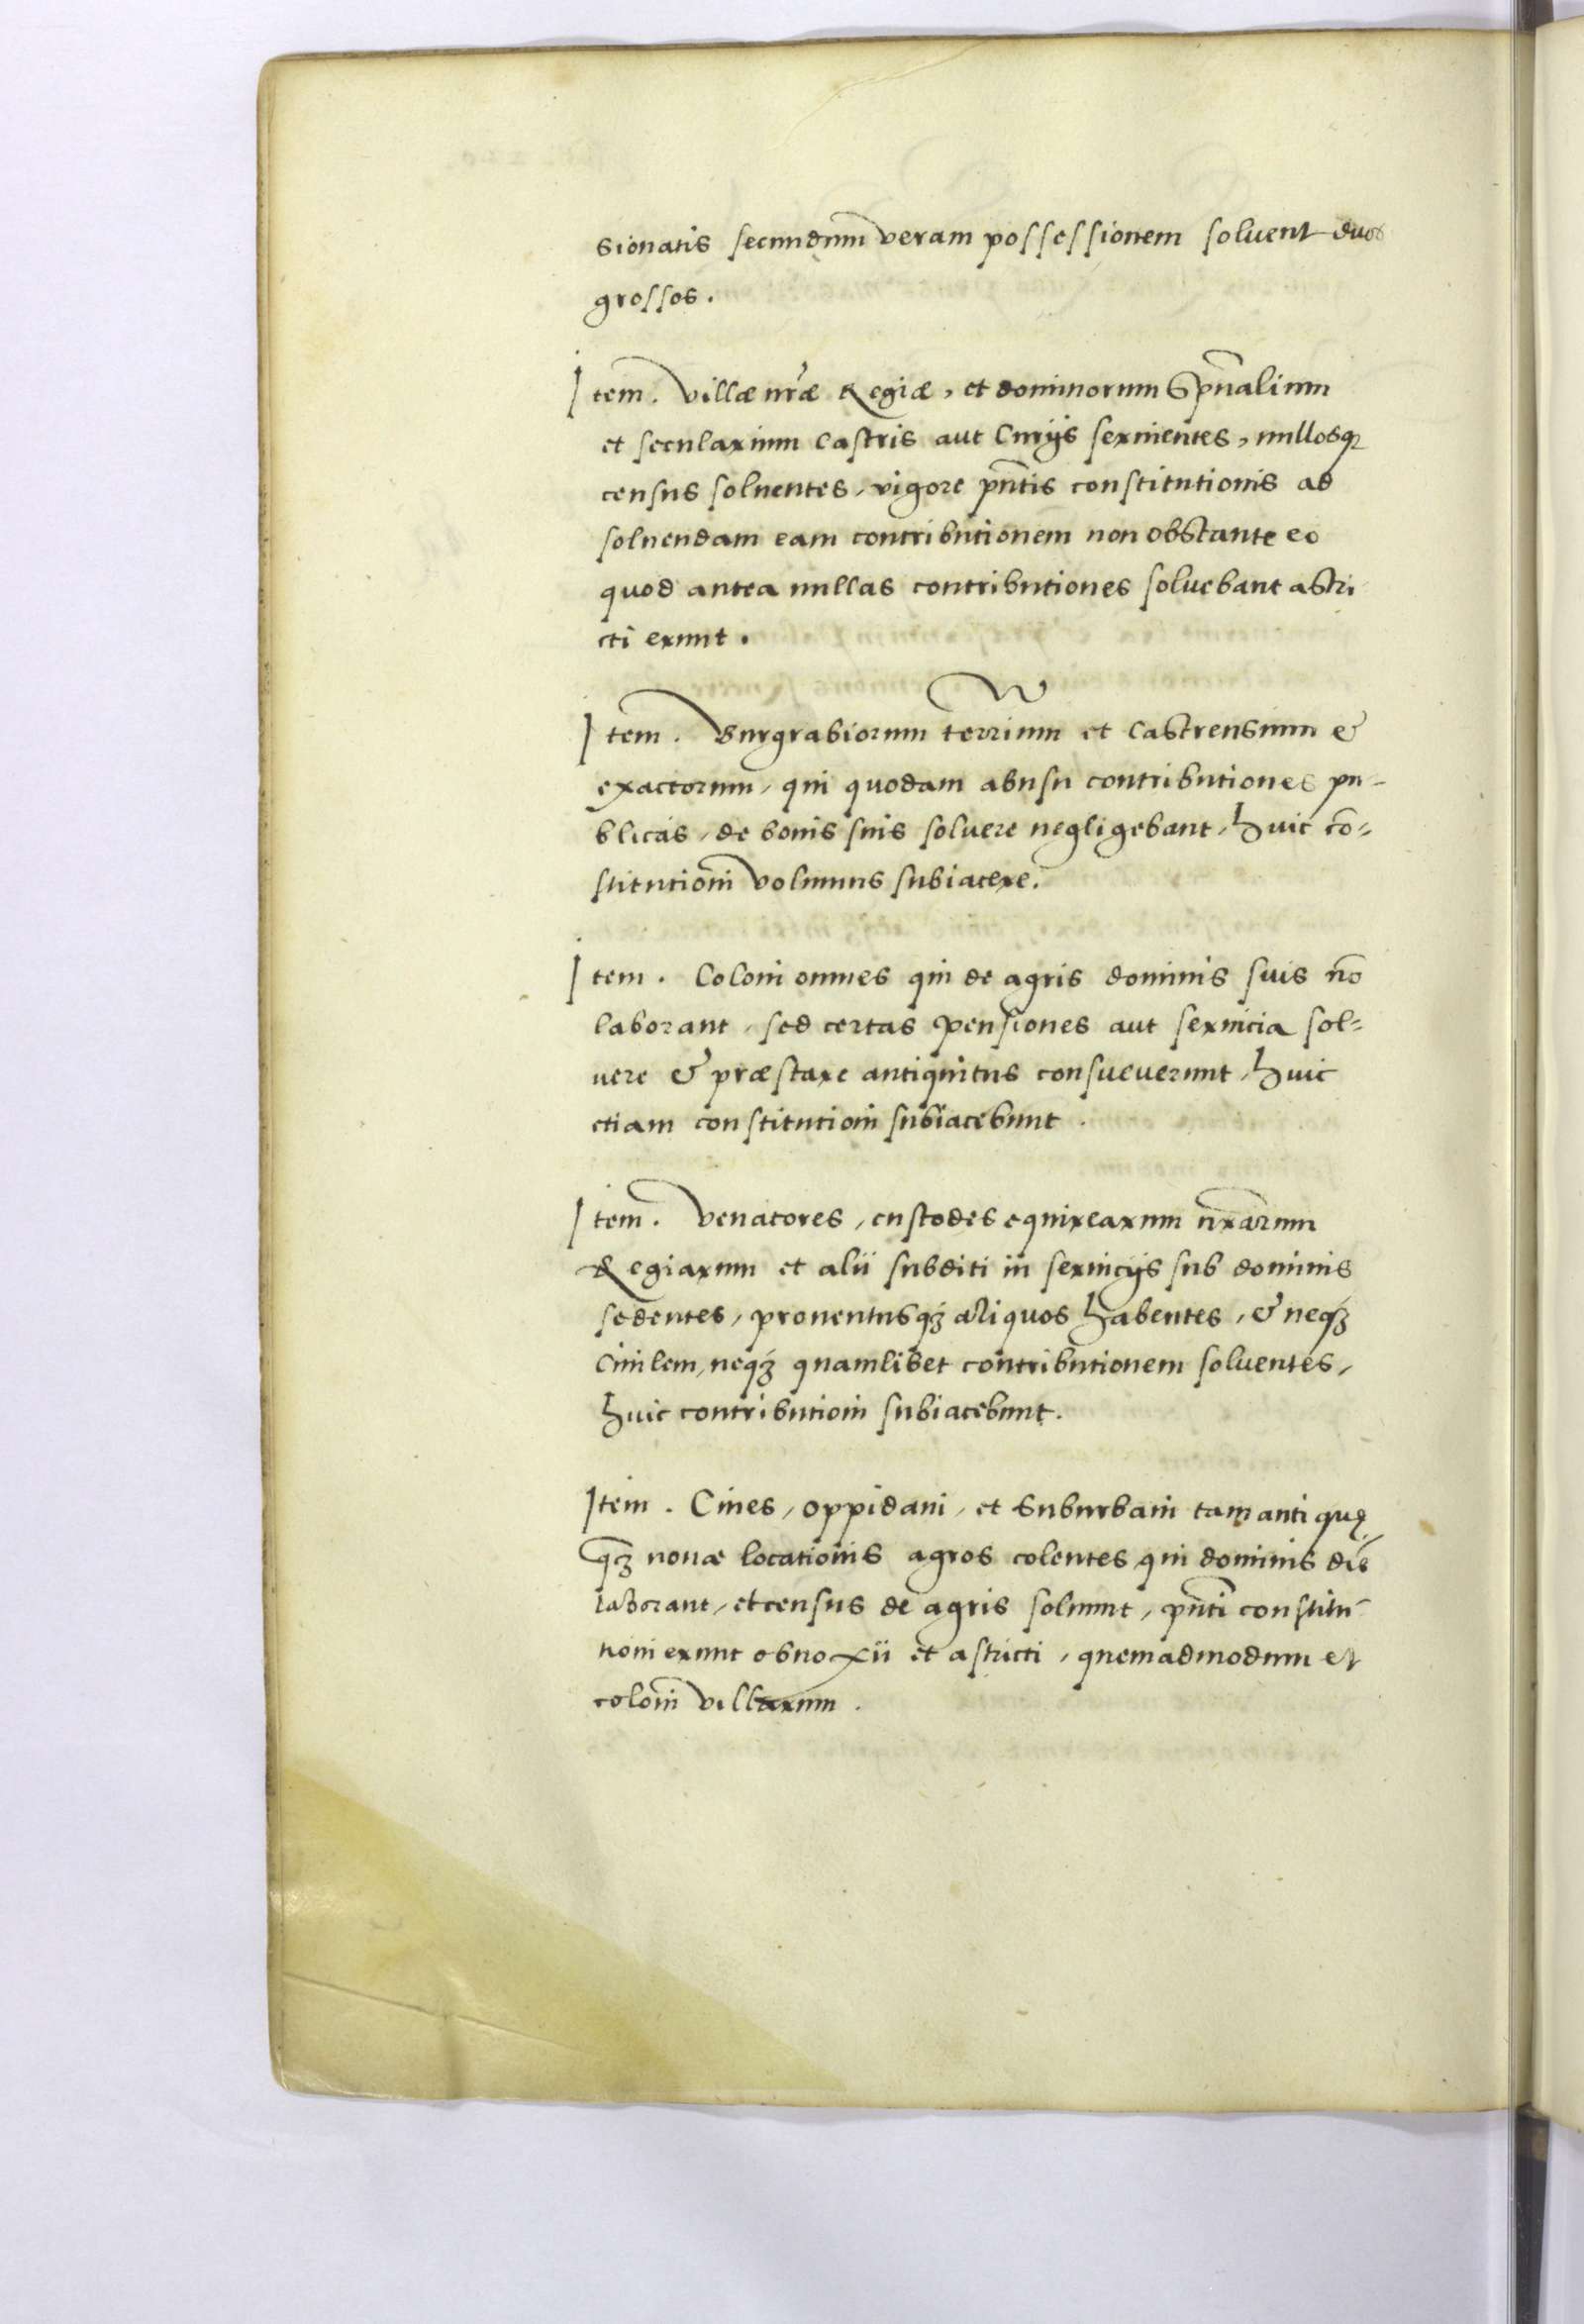 sionatis secundum veram possessionem soluent duos
grossos.
Item. Villæ nr̃æ Regiæ, et dominorum Sp̃ualium
et secularium castris aut Curijs seruientes, nullosq̃
census soluentes, vigore pñtis constitutionis ad
soluendam eam contributionem non obstante eo
quod antea nullas contributiones soluebant astri
cti erunt.
Item. Burgrabiorum terrium et Castrensium &
exactorum, qui quodam abusu contributiones pu-
blicas, de bonis suis soluere negligebant, huic cõ-
stitutioni volumus subiacere.
Item. Coloni omnes qui de agris dominis suis nõ
laborant, sed certas pensiones aut seruicia sol-
uere & præstare antiquitus consueuerunt, huic
etiam constitutioni subiacebunt.
Item. Venatores, custodes equirearum nr̃arum
Regiarum et alii subditi in seruicijs sub dominis
sedentes, prouentusqȝ aliquos habentes, & neqȝ
Ciuilem, neqȝ quamlibet contributionem soluentes,
huic contributioni subiacebunt.
Item. Ciues, oppidani, et Suburbani tam antiquę
q̃ȝ nouæ locationis agros colentes qui dominis diẽ
laborant, et census de agris soluunt, pñti constitu-
tioni erunt obnoxii et astricti, quemadmodum et
coloni villarum.